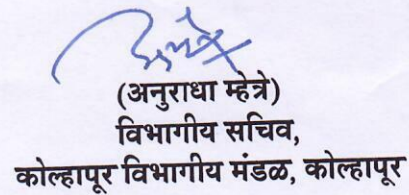 (अनुराधा म्हेत्रे)
विभागीय सचिव,
कोल्हापूर विभागीय मंडळ, कोल्हापूर